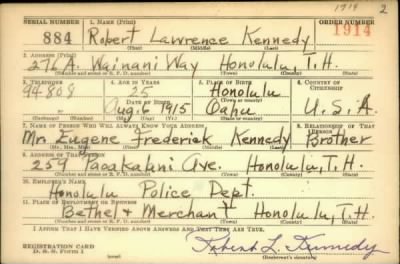 1914 2
SERIAL NUMBER 1. NAME (Print) ORDER NUMBER
884 Robert Lawrence Kennedy 1914
(First) (Middle) (Last)
2. ADDRESS (Print)
276 A. Wainani Way Honolulu, T.H.
(Number and street or R. F. D. number) (Town) (County) (State)
3. TELEPHONE 4. AGE IN YEARS 5. PLACE OF BIRTH 6. COUNTRY OF CITIZENSHIP
94808 25 Honolulu
DATE OF BIRTH (Town or county)
Aug. 6 1915 Oahu U.S.A.
(Exchange) (Number) (Mo.) (Day) (Yr.) (State or country)
7. NAME OF PERSON WHO WILL ALWAYS KNOW YOUR ADDRESS 8. RELATIONSHIP OF THAT PERSON
Mr. Eugene Frederick Kennedy Brother
(Mr., Mrs., Miss) (First) (Middle) (Last)
9. ADDRESS OF THAT PERSON
259 Ave. Honolulu, T.H.
(Number and street or R. F. D. number) (Town) (County) (State)
10. EMPLOYER'S NAME
Honolulu Police Dept.
11. PLACE OF EMPLOYMENT OR BUSINESS
Bethel & Merchant Honolulu, T.H.
(Number and street or R. F. D. number) (Town) (County) (State)
I AFFIRM THAT I HAVE VERIFIED ABOVE ANSWERS AND THAT THEY ARE TRUE.
REGISTRATION CARD
D. S. S. Form 1
Robert L. Kennedy
(Registrant's signature)